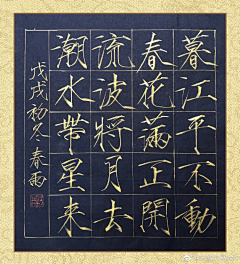 暮江平不動
春花滿正開
流波將月去
潮水帶星來
戊戌初冬春雨